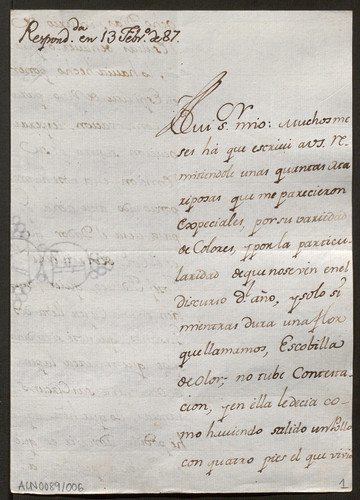 Respond.da en 13 Febr.o de 87.
Mui s.r mio: Muchos me
ses há que escriui a vs. Re
mitiendole unas quantas Ma
riposas que me parecieron
Especiales, por su variedad
de Colores, y por la particu-
laridad de que no se ven en el
discurso d año, y solo si
mientras dura una flor
que llamamos, Escobilla
de olor; no tube Contesta-
cion, y en ella le decia co-
mo haviendo salido un Pollo
con quatro pies el que vivio
ACN0089/006
1